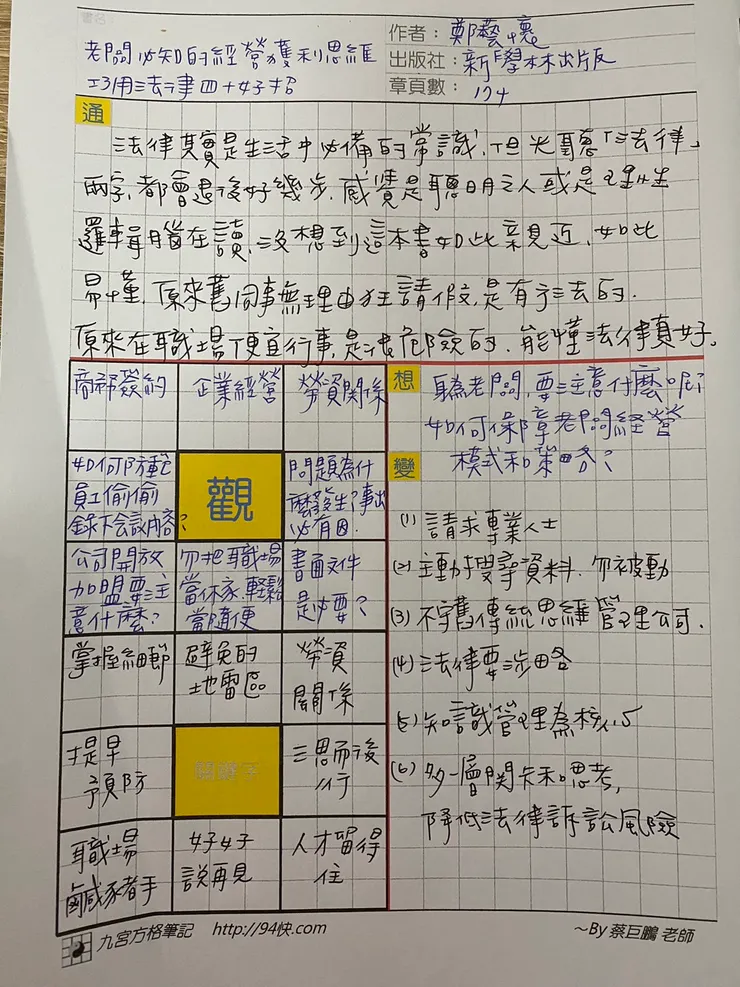 書名
老闆必知的經營獲利思維
巧用法律四十好招
作者：鄭藝懷
出版社：新學林出版
章頁數：174
通
法律其實是生活中必備的「常識」，但光聽「法律」
兩字，都會退後好幾步，感覺是聰明之人或是理性
邏輯腦在讀，沒想到這本書如此親近，如此
易懂，原來舊同事無理由狂請假，是有方法的．
原來在職場便宜行事，是很危險的，能懂法律真好。
商務簽約
企業經營
勞資關係
如何防範
員工偷偷
錄下會議內容？
觀
問題為什
麼發生？事出
必有因．
公司開放
加盟要注
意什麼？
勿把職場
當休家，輕鬆
當隨便
書面文件
是必要？
掌握細節
避免的
地雷區
勞資
關係
提早
預防
關鍵字
三思而後
行
職場
鹹豬手
好好
說再見
人才留得
住
想
身為老闆，要注意什麼呢？
如何保障老闆經營
模式和策略？
變
(1) 請求專業人士
(2) 主動搜尋資料，勿被動
(3) 不守舊傳統思維管理公司．
(4) 法律要涉略
(5) 知識管理為核心
(6) 多一層關卡和思考，
降低法律訴訟風險
九宮方格筆記 http://94快.com
～By 蔡巨鵬 老師